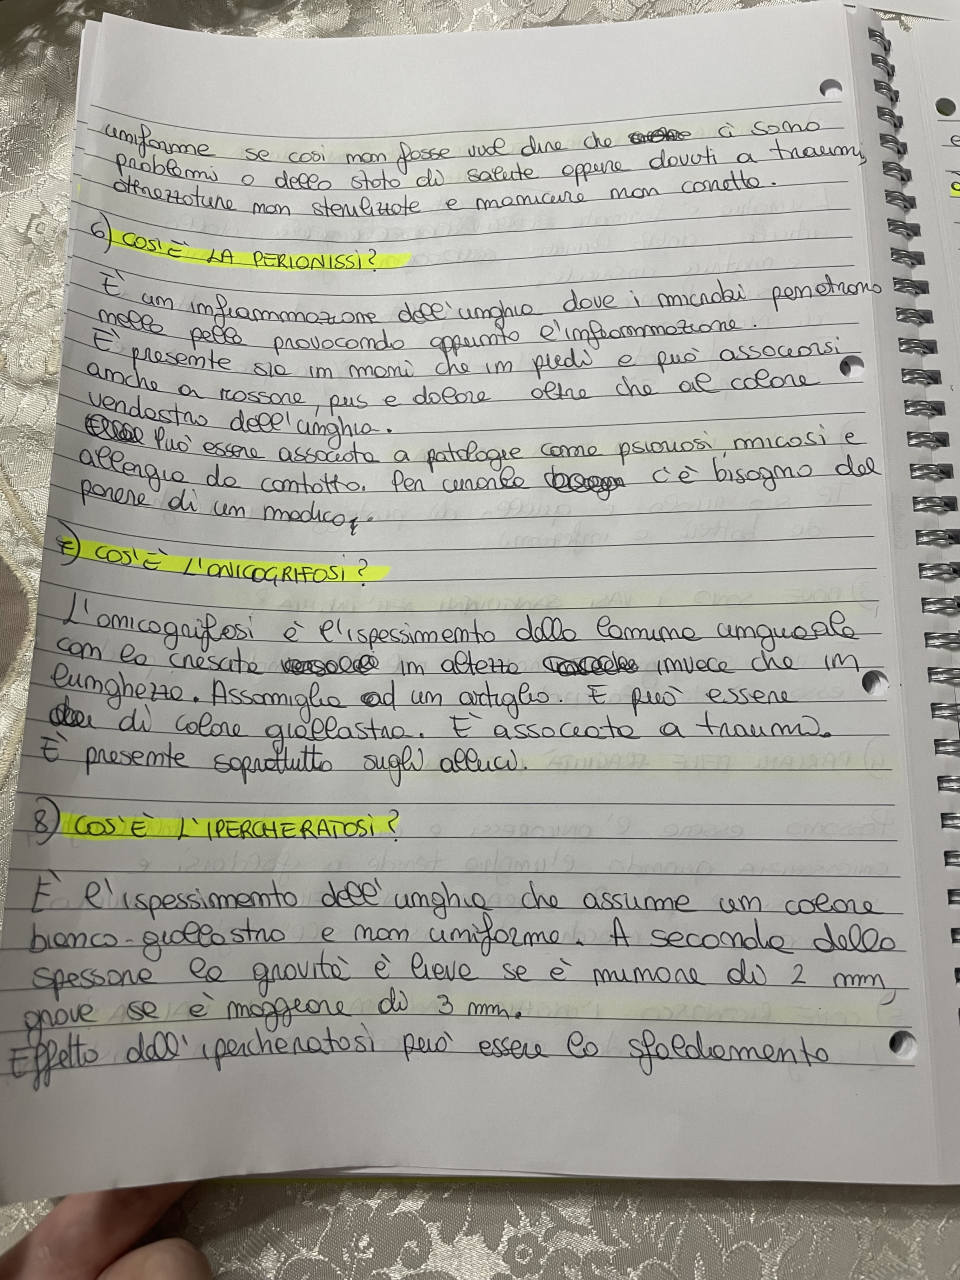 uniforme se così non fosse vuol dire che ci sono
problemi o dello stato di salute oppure dovuti a traumi,
attrezzature non sterilizzate e manicure non corretta.
6) COS'È LA PERIONISSI?
È un infiammazione dell'unghia dove i microbi penetrano
nella pelle provocando appunto l'infiammazione.
È presente sia in mani che in piedi e può associarsi
anche a rossore, pus e dolore oltre che al colore
verdastro dell'unghia.
Può essere associata a patologie come psioriasi, micosi e
allergia da contatto. Per curarla c'è bisogno del
parere di un medico.
7) COS'È L'ONICOGRIFOSI?
L'onicogrifosi è l'ispessimento della lamina ungueale
con la crescita in altezza invece che in
lunghezza. Assomiglia ad un artiglio. E può essere
di colore giallastro. È associata a traumi.
È presente soprattutto sugli alluci.
8) COS'È L'IPERCHERATOSI?
È l'ispessimento dell'unghia che assume un colore
bianco-giallastro e non uniforme. A seconda dello
spessore la gravità è lieve se è minore di 2 mm,
grave se è maggiore di 3 mm.
Effetto dell'ipercheratosi può essere lo sfaldamento